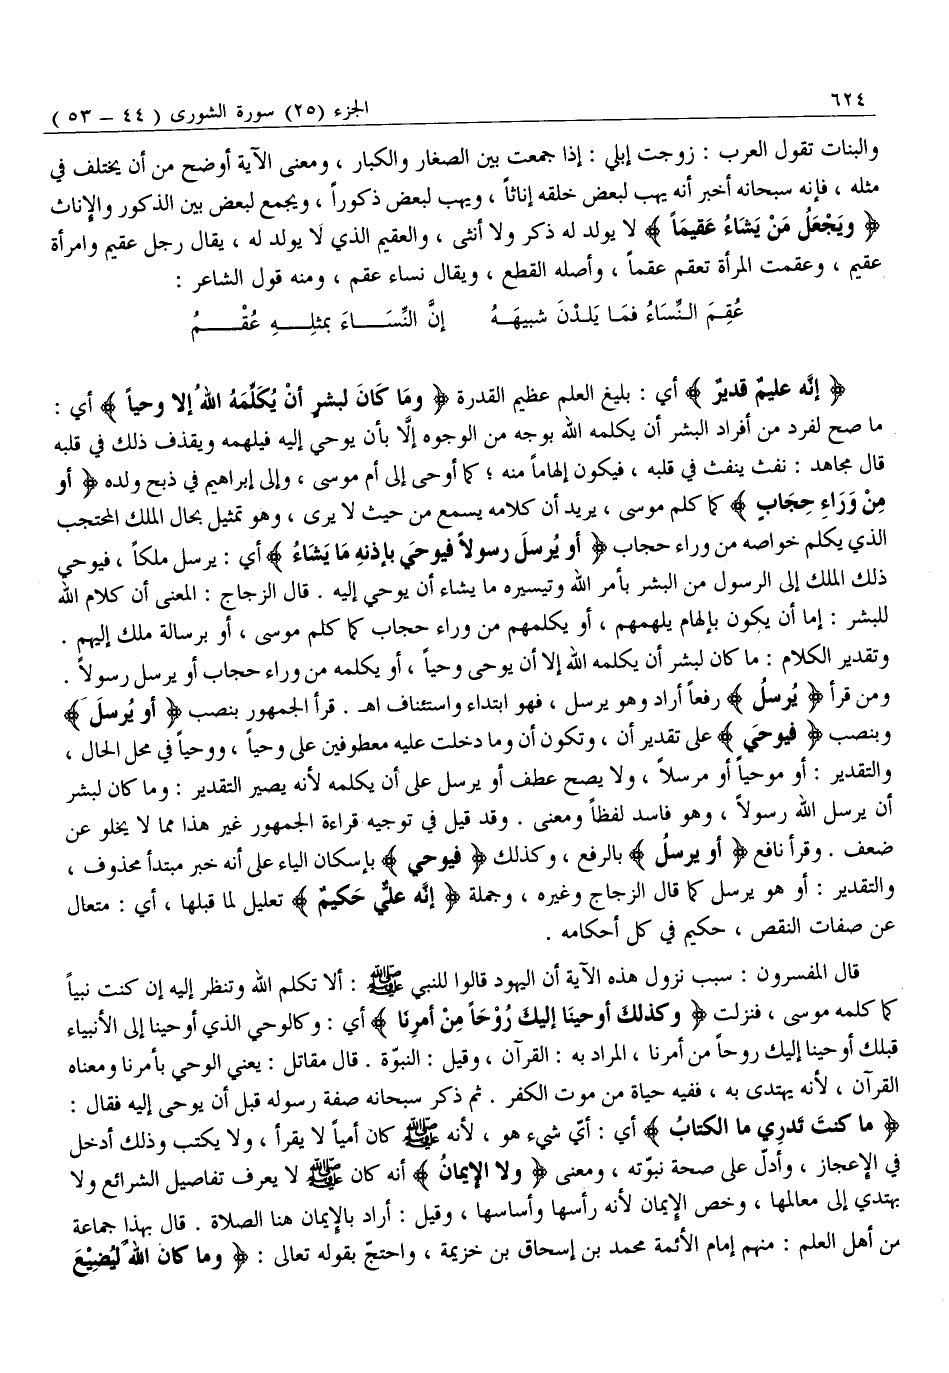 ٦٢٤
الجزء (٢٥) سورة الشورى ( ٤٤ - ٥٣ )
والبنات تقول العرب : زوجت إبلي : إذا جمعت بين الصغار والكبار ، ومعنى الآية أوضح من أن يختلف في
مثله ، فإنه سبحانه أخبر أنه يهب لبعض خلقه إناثاً ، ويهب لبعض ذكوراً ، ويجمع لبعض بين الذكور والإناث
﴿ ويَجْعَلُ مَنْ يَشَاءُ عَقِيماً ﴾ لا يولد له ذكر ولا أنثى ، والعقيم الذي لَا يولد له ، يقال رجل عقيم وامرأة
عقيم ، وعقمت المرأة تعقم عقماً ، وأصله القطع ، ويقال نساء عقم ، ومنه قول الشاعر :
عُقِمَ النِّسَاءُ فمَا يَلدْنَ شبيهَهُ إنَّ النِّسَاءَ بمثلِهِ عُقْمُ
﴿ إنَّه عليمٌ قديرٌ ﴾ أي : بليغ العلم عظيم القدرة ﴿ ومَا كَانَ لبشرٍ أنْ يُكَلِّمَهُ اللهُ إلا وحياً ﴾ أي :
ما صح لفرد من أفراد البشر أن يكلمه الله بوجه من الوجوه إلَّا بأن يوحي إليه فيلهمه ويقذف ذلك في قلبه
قال مجاهد : نفث ينفث في قلبه ، فيكون إلهاماً منه ؛ كما أوحى إلى أم موسى ، وإلى إبراهيم في ذبح ولده ﴿ أو
مِنْ وَرَاءِ حِجَابٍ ﴾ كما كلم موسى ، يريد أن كلامه يسمع من حيث لا يرى ، وهو تمثيل بحال الملك المحتجب
الذي يكلم خواصه من وراء حجاب ﴿ أو يُرسلَ رسولاً فيوحيَ بإذنهِ مَا يَشَاءُ ﴾ أي : يرسل ملكاً ، فيوحي
ذلك الملك إلى الرسول من البشر بأمر الله وتيسيره ما يشاء أن يوحي إليه . قال الزجاج : المعنى أن كلام الله
للبشر : إما أن يكون بإلهام يلهمهم ، أو يكلمهم من وراء حجاب كما كلم موسى ، أو برسالة ملك إليهم .
وتقدير الكلام : ما كان لبشر أن يكلمه الله إلا أن يوحى وحياً ، أو يكلمه من وراء حجاب أو يرسل رسولاً .
ومن قرأ ﴿ يُرسلُ ﴾ رفعاً أراد وهو يرسل ، فهو ابتداء واستئناف اهـ . قرأ الجمهور بنصب ﴿ أو يُرسلَ ﴾
وبنصب ﴿ فيوحيَ ﴾ على تقدير أن ، وتكون أن وما دخلت عليه معطوفين على وحياً ، ووحياً في محل الحال ،
والتقدير : أو موحياً أو مرسلاً ، ولا يصح عطف أو يرسل على أن يكلمه لأنه يصير التقدير : وما كان لبشر
أن يرسل الله رسولاً ، وهو فاسد لفظاً ومعنى . وقد قيل في توجيه قراءة الجمهور غير هذا مما لا يخلو عن
ضعف . وقرأ نافع ﴿ أو يرسلُ ﴾ بالرفع ، وكذلك ﴿ فيوحي ﴾ بإسكان الياء على أنه خبر مبتدأ محذوف ،
والتقدير : أو هو يرسل كما قال الزجاج وغيره ، وجملة ﴿ إنَّه عليٌّ حَكيمٌ ﴾ تعليل لما قبلها ، أي : متعال
عن صفات النقص ، حكيم في كل أحكامه .
قال المفسرون : سبب نزول هذه الآية أن اليهود قالوا للنبي ﷺ : ألا تكلم الله وتنظر إليه إن كنت نبياً
كما كلمه موسى ، فنزلت ﴿ وكذلكَ أوحينَا إليكَ رُوْحَاً مِنْ أمرِنَا ﴾ أي : وكالوحي الذي أوحينا إلى الأنبياء
قبلك أوحينا إليك روحاً من أمرنا ، المراد به : القرآن ، وقيل : النبوّة . قال مقاتل : يعني الوحي بأمرنا ومعناه
القرآن ، لأنه يهتدى به ، ففيه حياة من موت الكفر . ثم ذكر سبحانه صفة رسوله قبل أن يوحى إليه فقال :
﴿ ما كنتَ تَدرِي ما الكتابُ ﴾ أي : أيّ شيء هو ، لأنه ﷺ كان أمياً لا يقرأ ، ولا يكتب وذلك أدخل
في الإعجاز ، وأدلّ على صحة نبوّته ، ومعنى ﴿ ولا الإيمانُ ﴾ أنه كان ﷺ لا يعرف تفاصيل الشرائع ولا
يهتدي إلى معالمها ، وخص الإيمان لأنه رأسها وأساسها ، وقيل : أراد بالإيمان هنا الصلاة . قال بهذا جماعة
من أهل العلم : منهم إمام الأئمة محمد بن إسحاق بن خزيمة ، واحتجّ بقوله تعالى : ﴿ وما كانَ اللهُ ليُضِيْعَ